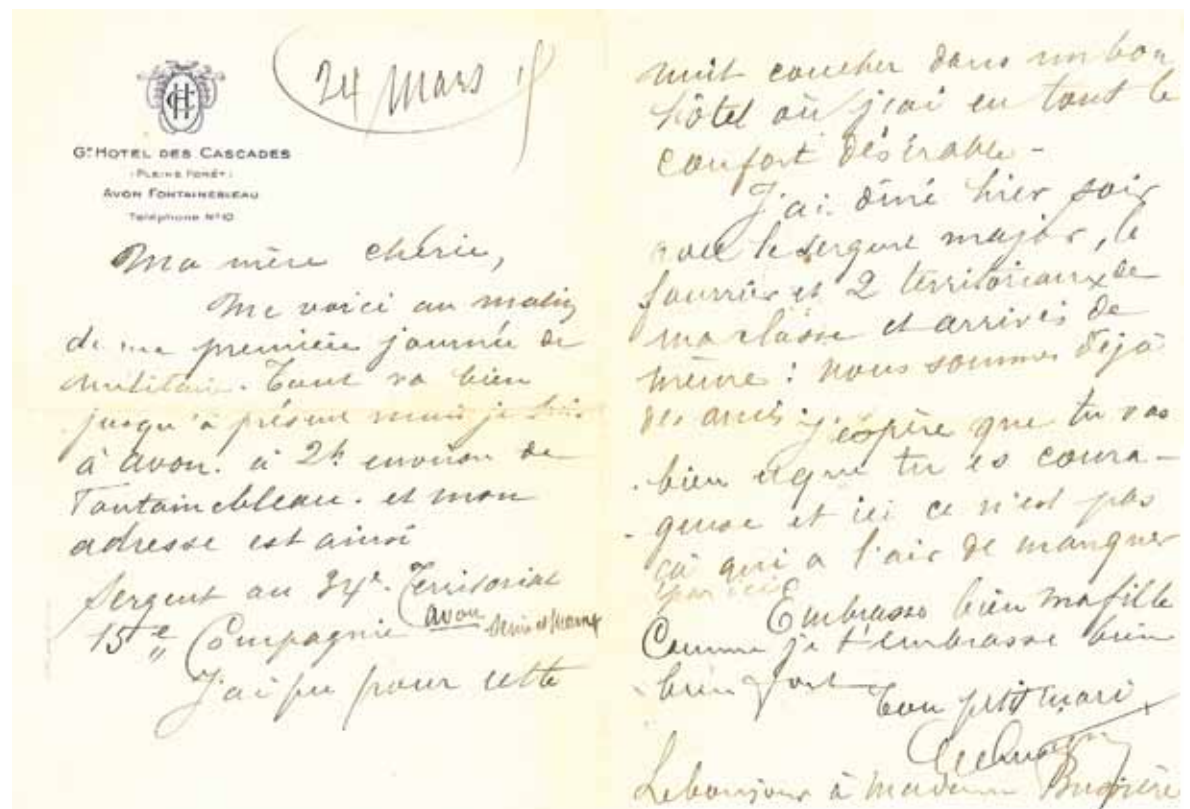 24 Mars 15
Gd HOTEL DES CASCADES
PLEINE FORÊT
AVON FONTAINEBLEAU
Téléphone N° 10
Ma mère chérie,
Me voici au matin
de ma première journée de
militaire. Tout va bien
jusqu'à présent mais je suis
à Avon. à 2k environ de
Fontainebleau. et mon
adresse est ainsi
Sergent au 34e Territorial
15e Compagnie Avon Seine et Marne
J'ai pu pour cette
nuit coucher dans un bon
hôtel où j'ai eu tout le
confort désirable -
J'ai dîné hier soir
avec le sergent major, le
fourrier et 2 territoriaux de
ma classe et arrivés de
même : nous sommes déjà
des amis. j'espère que tu vas
bien et que tu es coura-
geuse et ici ce n'est pas
ça qui a l'air de manquer
par ici
Embrasse bien ma fille
Comme je t'embrasse bien
bien fort
Ton ptit mari
Le bonjour à madame